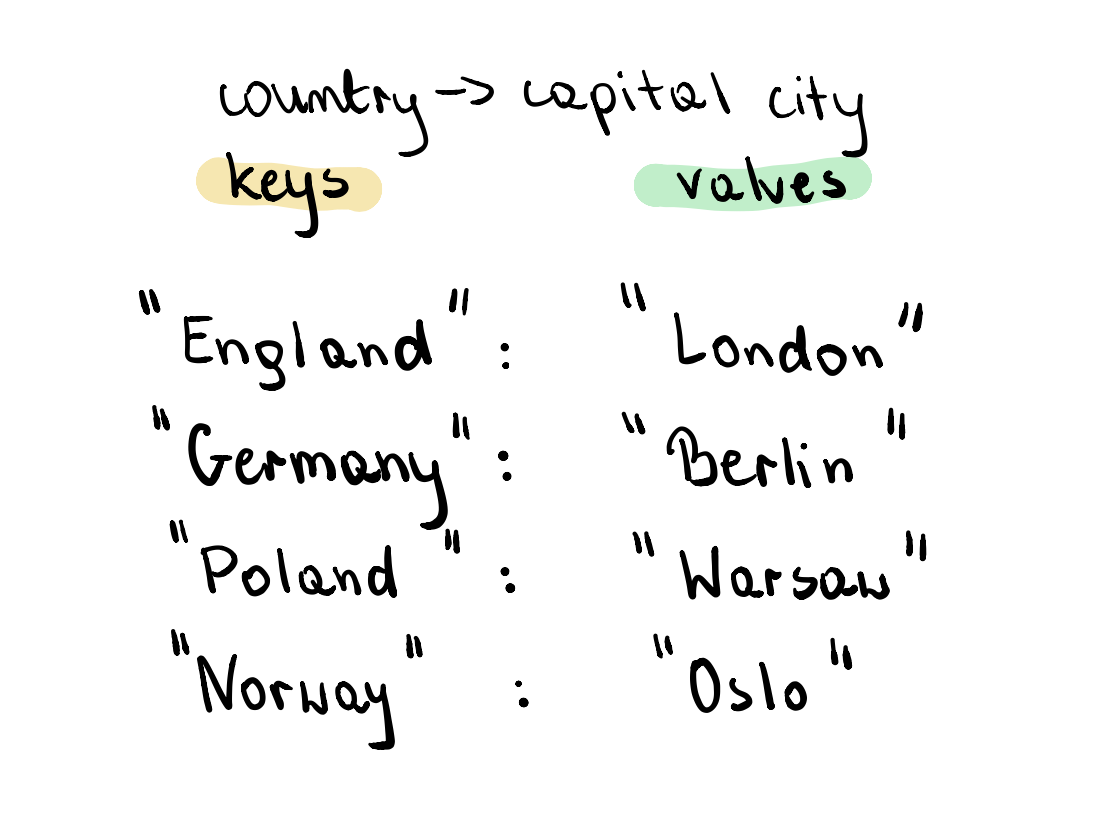 country -> capital city
keys values
"England" : "London"
"Germany" : "Berlin"
"Poland" : "Warsaw"
"Norway" : "Oslo"